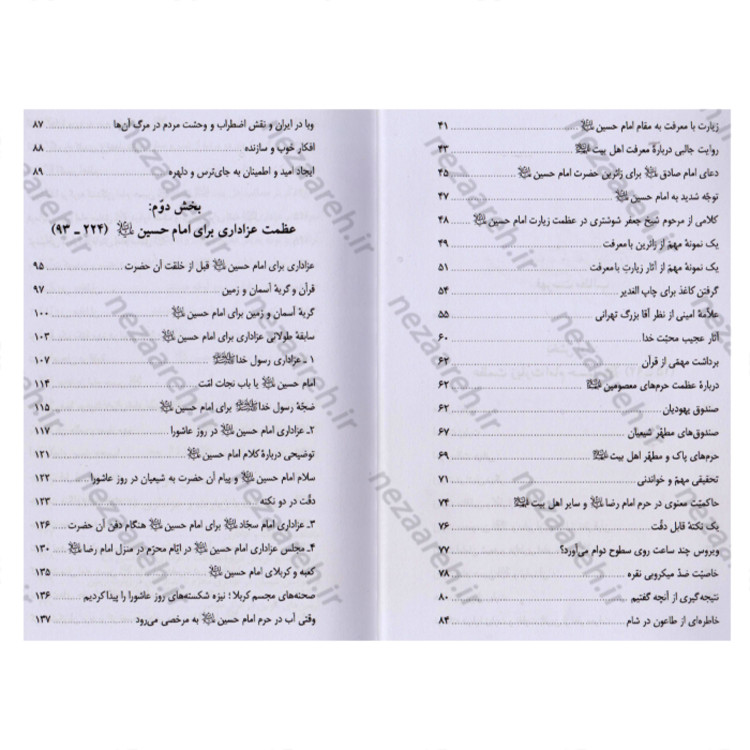 زیارت با معرفت به مقام امام حسین علیه السلام ........ ۴۱
روایت جالبی دربارهٔ معرفت اهل بیت علیهم السلام ........ ۴۳
دعای امام صادق علیه السلام برای زائرین حضرت امام حسین علیه السلام ........ ۴۵
توجّه شدید به امام حسین علیه السلام ........ ۴۷
کلامی از مرحوم شیخ جعفر شوشتری در عظمت زیارت امام حسین علیه السلام ........ ۴۸
یک نمونهٔ مهمّ از زائرین بامعرفت ........ ۴۹
یک نمونهٔ مهمّ از آثار زیارتِ بامعرفت ........ ۵۱
گرفتن کاغذ برای چاپ الغدیر ........ ۵۴
علّامهٔ امینی از نظر آقا بزرگ تهرانی ........ ۵۵
آثار عجیب محبّت خدا ........ ۶۰
برداشت مهمّی از قرآن ........ ۶۲
دربارهٔ عظمت حرم‌های معصومین علیهم السلام ........ ۶۲
صندوق یهودیان ........ ۶۲
صندوق‌های مطهّر شیعیان ........ ۶۷
حرم‌های پاک و مطهّر اهل بیت علیهم السلام ........ ۶۹
تحقیقی مهمّ و خواندنی ........ ۷۱
حاکمیّت معنوی در حرم امام رضا علیه السلام و سایر اهل بیت علیهم السلام ........ ۷۴
یک نکتهٔ قابل دقّت ........ ۷۶
ویروس چند ساعت روی سطوح دوام می‌آورد؟ ........ ۷۷
خاصیّت ضدّ میکروبی نقره ........ ۷۸
نتیجه‌گیری از آنچه گفتیم ........ ۸۰
خاطره‌ای از طاعون در شام ........ ۸۴
وبا در ایران و نقش اضطراب و وحشت مردم در مرگ آن‌ها ........ ۸۷
افکار خوب و سازنده ........ ۸۸
ایجاد امید و اطمینان به جای‌ترس و دلهره ........ ۸۹
بخش دوّم:
عظمت عزاداری برای امام حسین علیه السلام (۲۲۴ ـ ۹۳)
عزاداری برای امام حسین علیه السلام قبل از خلقت آن حضرت ........ ۹۵
قرآن و گریهٔ آسمان و زمین ........ ۹۷
گریهٔ آسمان و زمین برای امام حسین علیه السلام ........ ۱۰۰
سابقهٔ طولانی عزاداری برای امام حسین علیه السلام ........ ۱۰۳
۱ ـ عزاداری رسول خدا ........ ۱۰۷
امام حسین علیه السلام یا باب نجات امّت ........ ۱۱۴
ضجّهٔ رسول خدا برای امام حسین علیه السلام ........ ۱۱۵
۲ـ عزاداری امام حسین علیه السلام در روز عاشورا ........ ۱۱۷
توضیحی دربارهٔ کلام امام حسین علیه السلام ........ ۱۲۱
سلام امام حسین علیه السلام و پیام آن حضرت به شیعیان در روز عاشورا ........ ۱۲۲
دقّت در دو نکته ........ ۱۲۳
۳ـ عزاداری امام سجّاد علیه السلام برای امام حسین علیه السلام هنگام دفن آن حضرت ........ ۱۲۶
۴ـ مجلس عزاداری امام حسین علیه السلام در ایّام محرّم در منزل امام رضا علیه السلام ........ ۱۳۰
کعبه و کربلای امام حسین علیه السلام ........ ۱۳۵
صحنه‌های مجسم کربلا؛ نیزه شکسته‌های روز عاشورا را پیدا کردیم ........ ۱۳۶
وقتی آب در حرم امام حسین علیه السلام به مرخصی می‌رود ........ ۱۳۷
nezaareh.ir